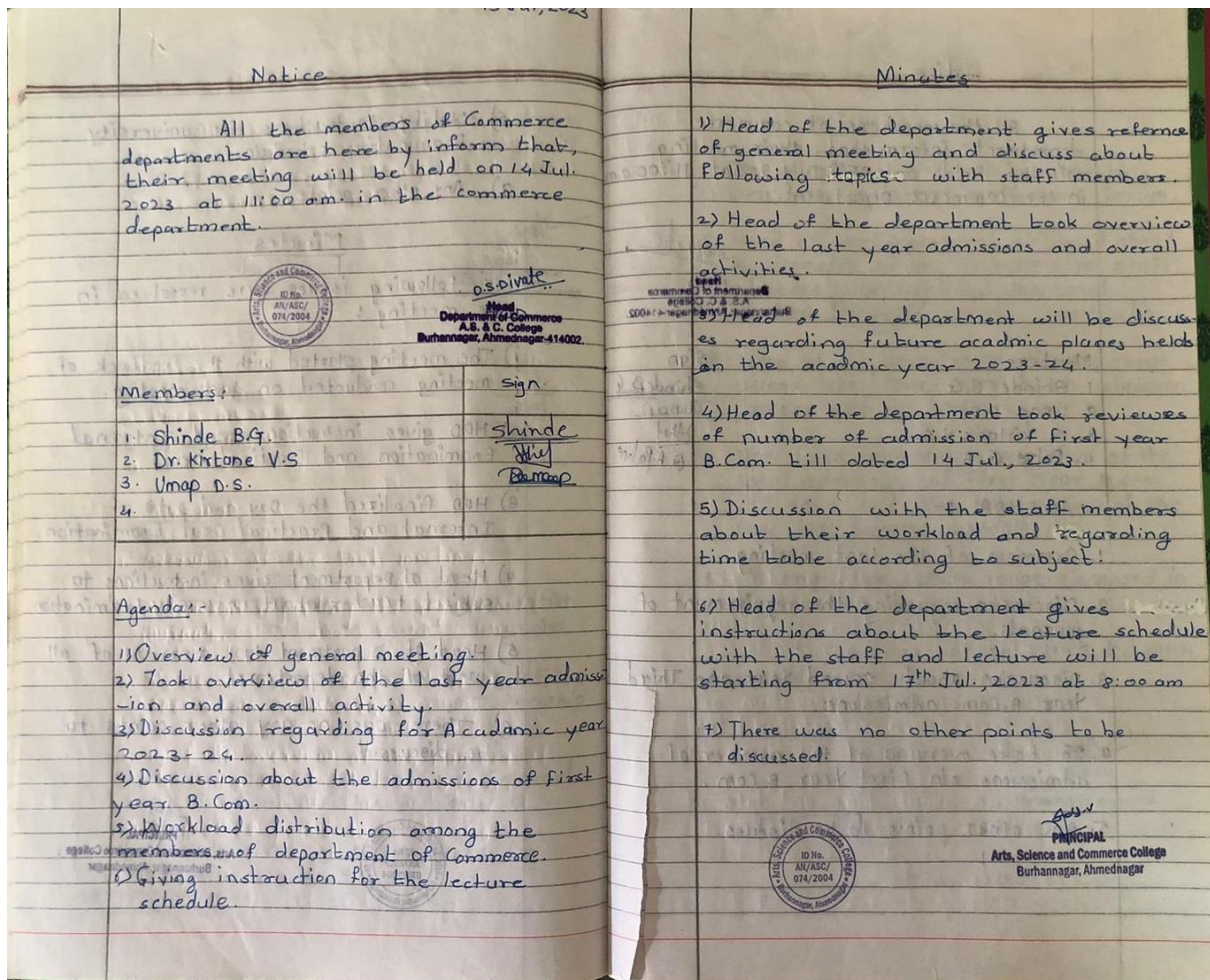 Jul, 2023
Notice
All the members of Commerce
departments are here by inform that,
their meeting will be held on 14 Jul.
2023 at 11:00 am. in the commerce
department.
Arts, Science and Commerce College
Burhannagar, Ahmednagar
ID No.
AN/ASC/
074/2004
D.S.Divate
Head
Department of Commerce
A.S. & C. College
Burhannagar, Ahmednagar-414002.
Members:
sign
1. Shinde B.G.
shinde
2. Dr. Kirtane V.S
3. Umap D.S.
4.
Agenda:-
1) Overview of general meeting.
2) Took overview of the last year admiss
-ion and overall activity.
3) Discussion regarding for Acadamic year
2023-24.
4) Discussion about the admissions of first
year. B.Com.
5) Workload distribution among the
members of department of Commerce.
6) Giving instruction for the lecture
schedule.
Minutes
1) Head of the department gives refernce
of general meeting and discuss about
following topics with staff members.
2) Head of the department took overview
of the last year admissions and overall
activities.
3) Head of the department will be discuss-
es regarding future acadmic planes helds
in the acadmic year 2023-24.
4) Head of the department took reviewes
of number of admission of first year
B.Com. till dated 14 Jul., 2023.
5) Discussion with the staff members
about their workload and regarding
time table according to subject.
6) Head of the department gives
instructions about the lecture schedule
with the staff and lecture will be
starting from 17th Jul., 2023 at 8:00 am
7) There was no other points to be
discussed.
Arts, Science and Commerce College
Burhannagar, Ahmednagar
ID No.
AN/ASC/
074/2004
PRINCIPAL
Arts, Science and Commerce College
Burhannagar, Ahmednagar